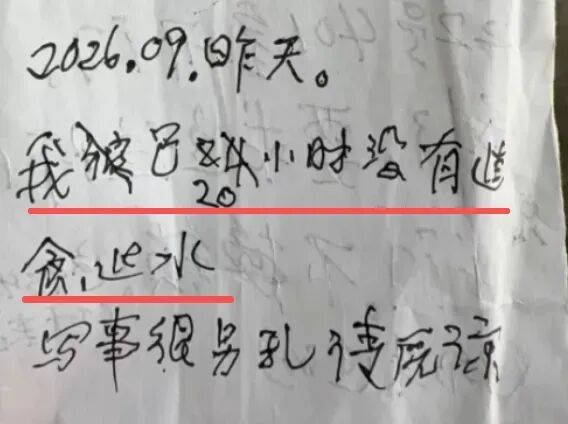 2026.09.昨天。
我 已 20 小时没有进
食,进水
写事很 乱 原谅